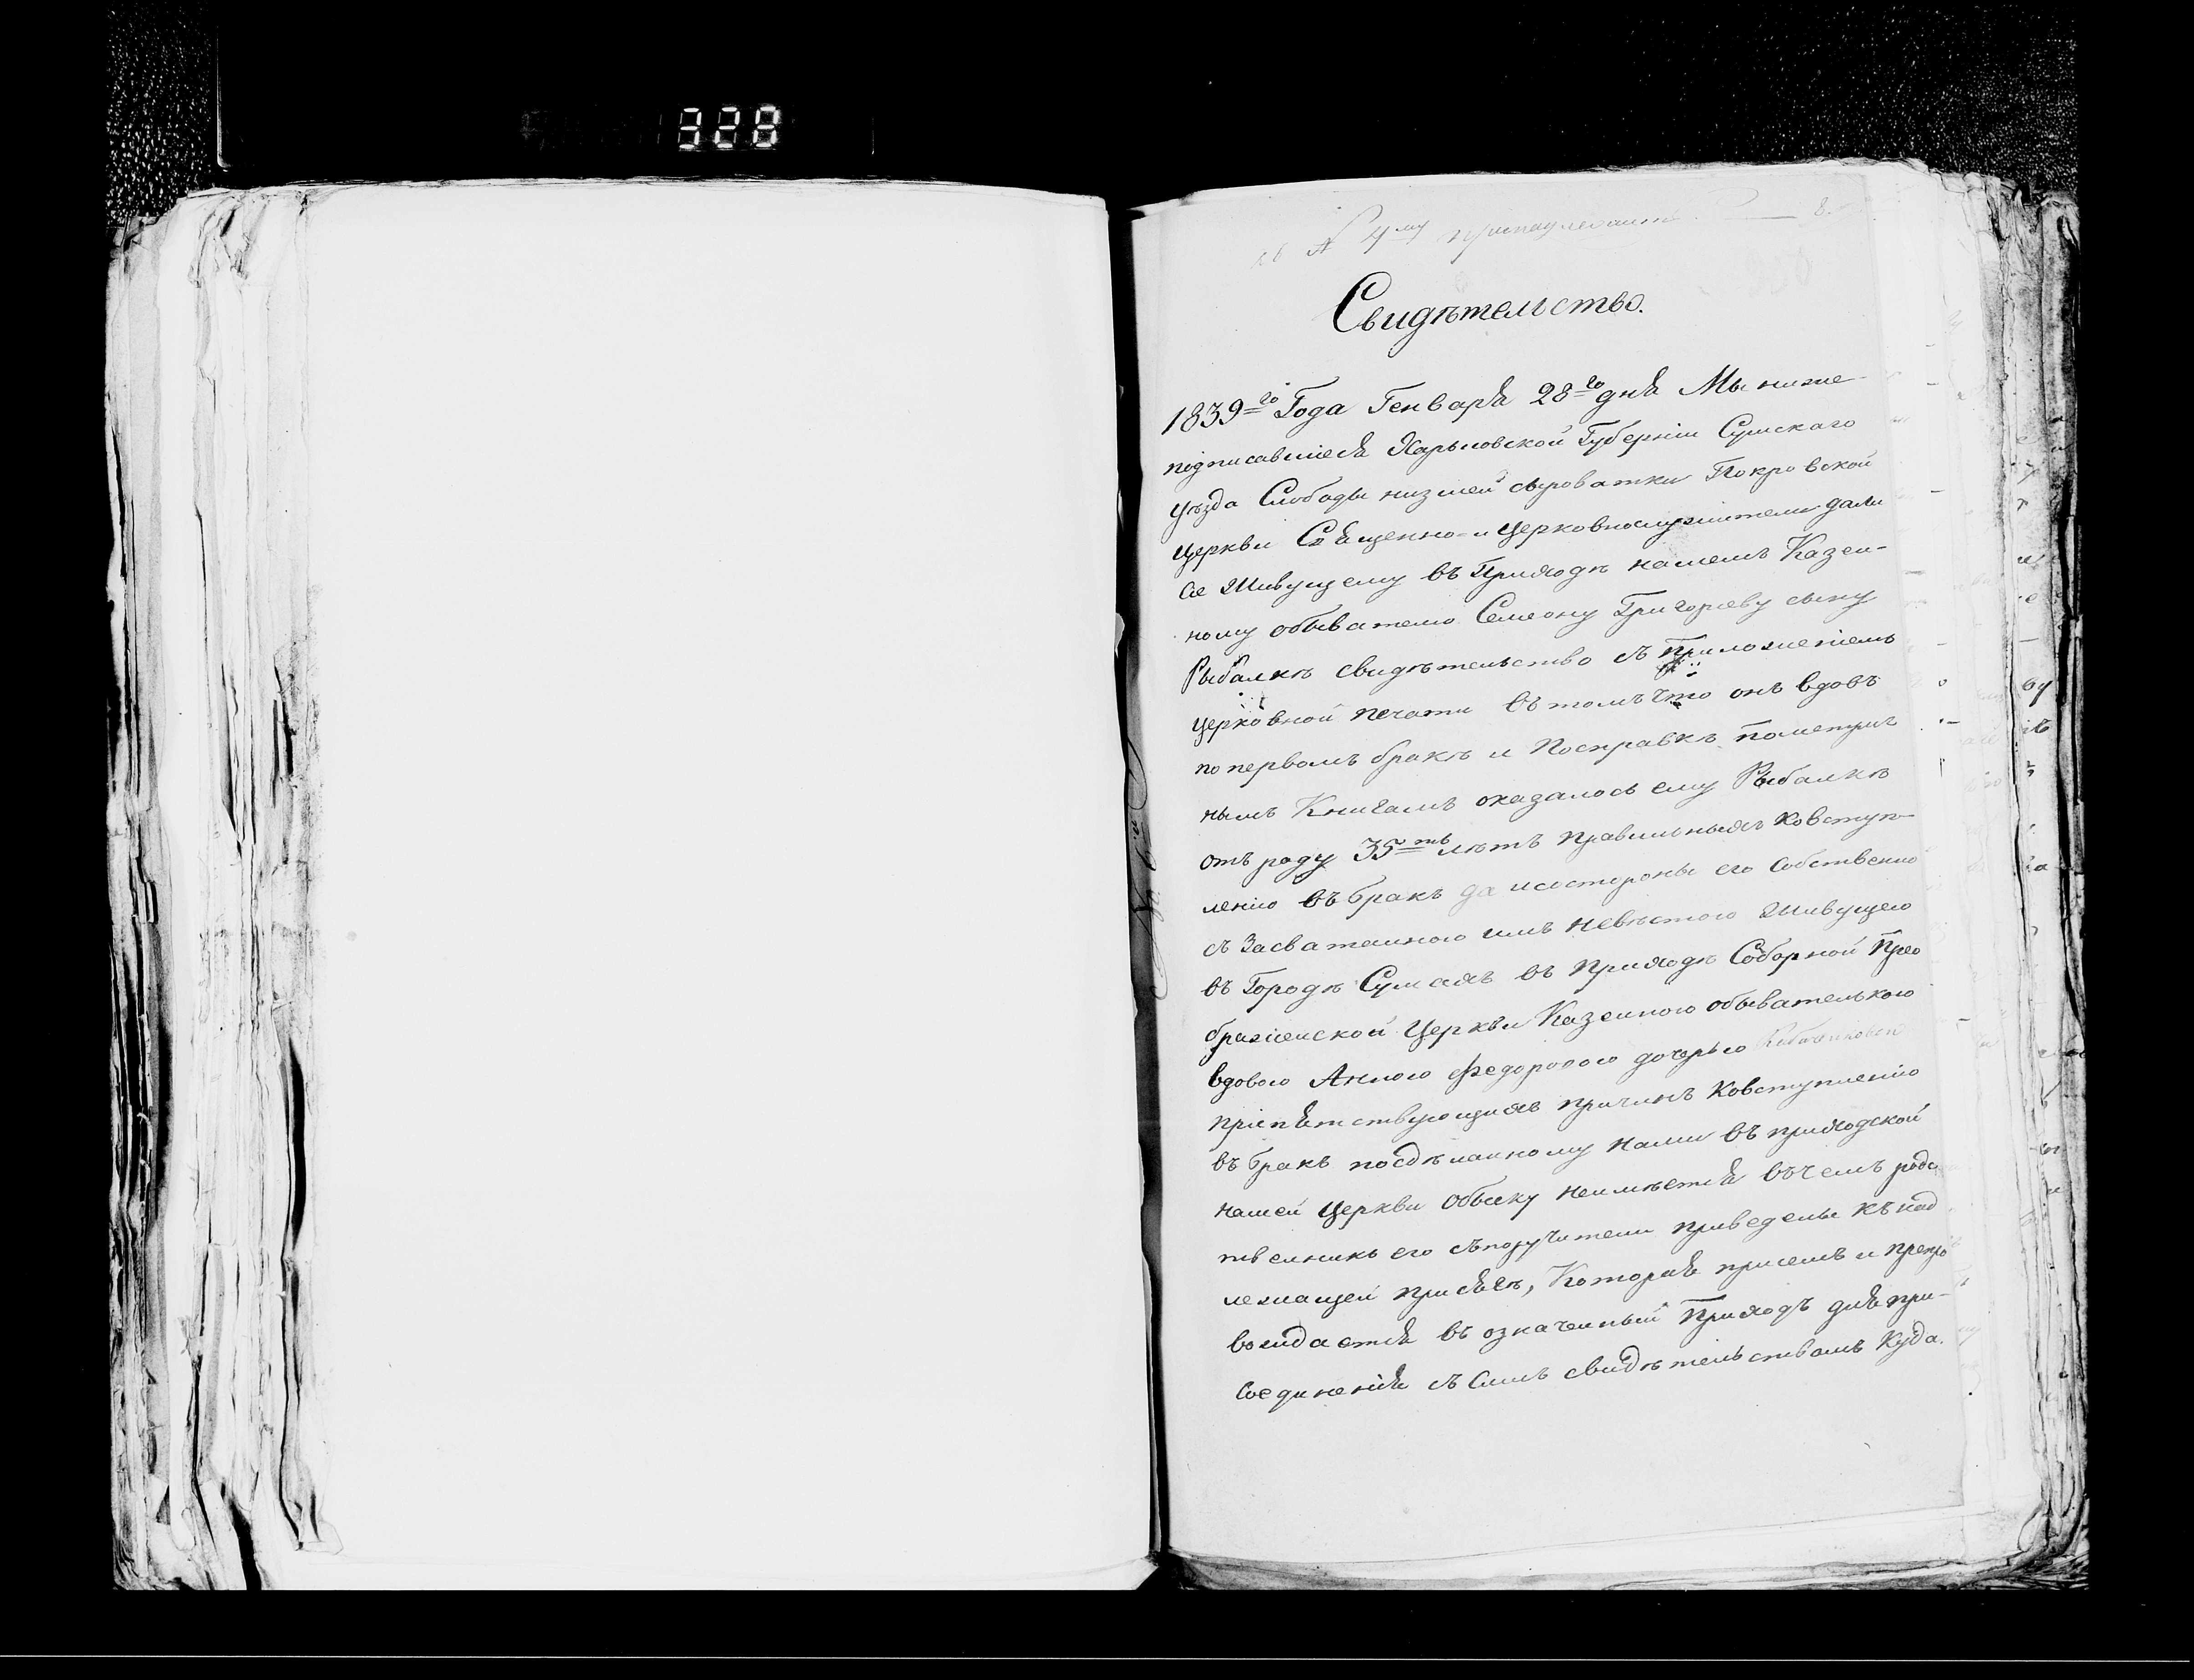 328
къ № 4му принадлежитъ 8.
Свидѣтельство.
1839го Года Генваря 28го дня Мы ниже-
подписавшіеся Харьковской Губерніи Сумскаго
уѣзда Слободы низшей сыроватки Покровской
церкви Священно-и церковнослужители дали
сіе Живущему въ Приходѣ нашемъ Казен-
ному обывателю Семеону Григорьеву сыну
Рыбалкѣ свидѣтельство съ приложеніемъ
церковной печати въ томъ что онъ вдовъ
по первомъ бракѣ и Посправкѣ пометри
нымъ Книгамъ оказалось ему Рыбалкѣ
отъ роду 35ть лѣтъ правильныхъ Ковступ-
ленію въ бракъ да исостороны его Собственно
съ Засватанною имъ невѣстою Живущею
въ Городѣ Сумахъ въ приходѣ Соборной Прео
браженской Церкви Казенною обывателькою
вдовою Анною Федоровою дочерью
препятствующихъ причинъ Ковступленію
въ бракъ посдѣланному нами въ приходской
нашей церкви Обыску неимѣется въчемъ родс
твенникъ его съпоручители приведены къ над
лежащей присягѣ, Которая присемъ и препро
вождается въ означенный Приходъ для при-
соединенія съ Симъ свидѣтельствомъ Куда.